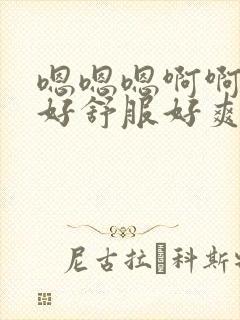 嗯嗯嗯啊啊
好舒服好爽
尼古拉�科斯